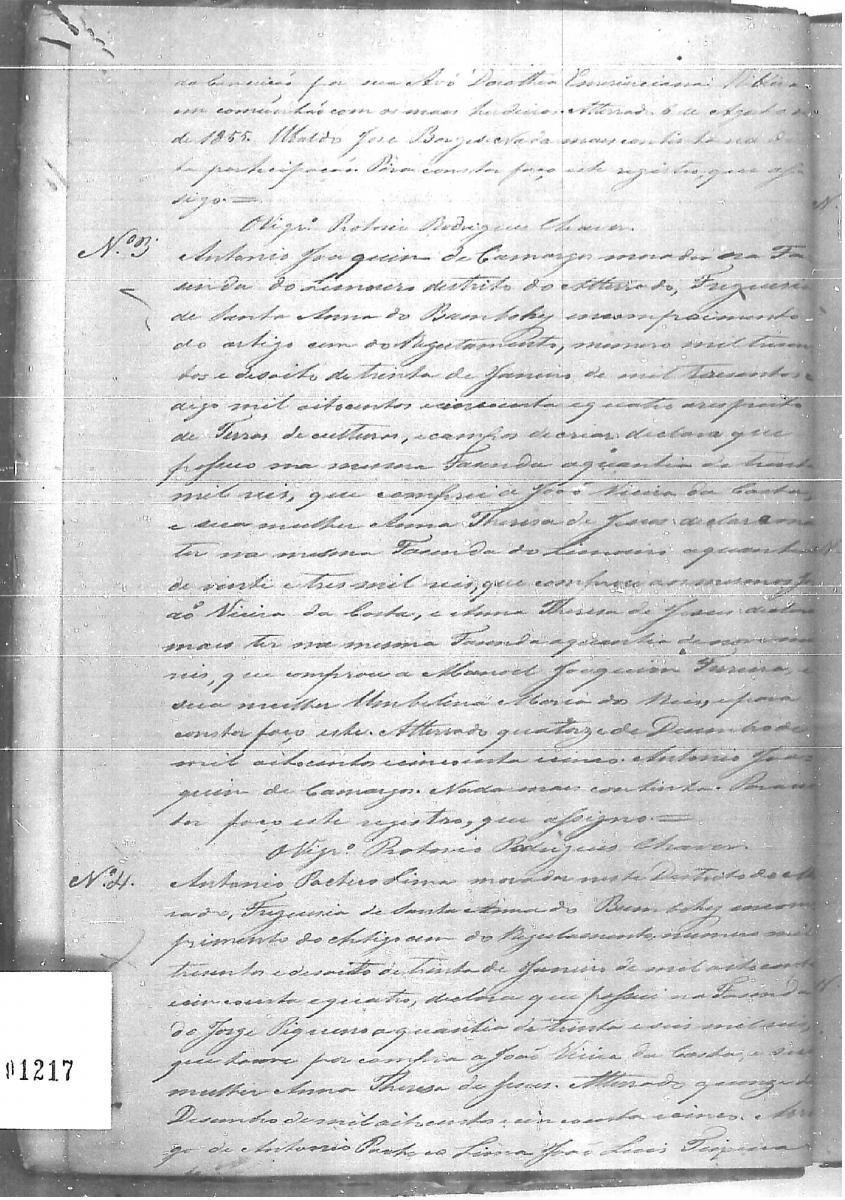 por sua Avó Dorothea Emerenciana Ribeira
em comunhão com os mais herdeiros Atterrado 6 de Agosto
de 1855. Ubaldo José Borges. Nada mais continha na di
ta participação. Para constar faço este registro, que assi
signo.=
O Vigrº. Rodrigues Chaves.
N.º 3
Antonio Joaquim de Camargos morador na Fa
senda do Limoeiro destrito do Atterrado, Freguesia
de Santa Anna do Bambohy em comprimento
do artigo cem do Regulamento, numero mil tresen
tos e desoito de trinta de Janeiro de mil tresentos
digo mil oitocentos e cincoenta e quatro a respeito
de Terras de culturas, e campos de criar declara que
possuo na mesma Fasenda a quantia de trinta
mil reis, que comprei a João Vieira da Costa,
e sua mulher Anna Theresa de Jesus declara mais
ter na mesma Fasenda do Limoeiro a quantia
de vinte e tres mil reis, que comprou aos mesmos Jo
ão Vieira da Costa, e Anna Theresa de Jesus declara
mais ter na mesma Fasenda a quantia de nove mil
reis, que comprou a Manoel Joaquim Ferreira, e
sua mulher Umbelina Maria dos Reis, e para
constar faço este. Atterrado quatorze de Desembro de
mil oitocentos e cincoenta e cinco. Antonio Joa
quim de Camargos. Nada mais continha. Para cons
tar faço este registro, que assigno.=
O Vigrº. Rodrigues Chaves.
N.º 4.
Antonio Pacheco Lima morador neste Destrito do At
rado, Freguesia de Santa Anna do Bambohy em com
primento do Artigo cem do Regulamento, numero mil
tresentos e desoito de trinta de Janeiro de mil oitocentos
e cincoenta e quatro, declara que possui na Fasenda
do Jorge Piqueno a quantia de trinta e seis mil reis,
que houve por compra a João Vieira da Costa, e sua
mulher Anna Theresa de Jesus. Atterrado quinze de
Desembro de mil oitocentos e cincoenta e cinco. Arro
go de Antonio Pacheco Lima João Luis Teixeira
01217